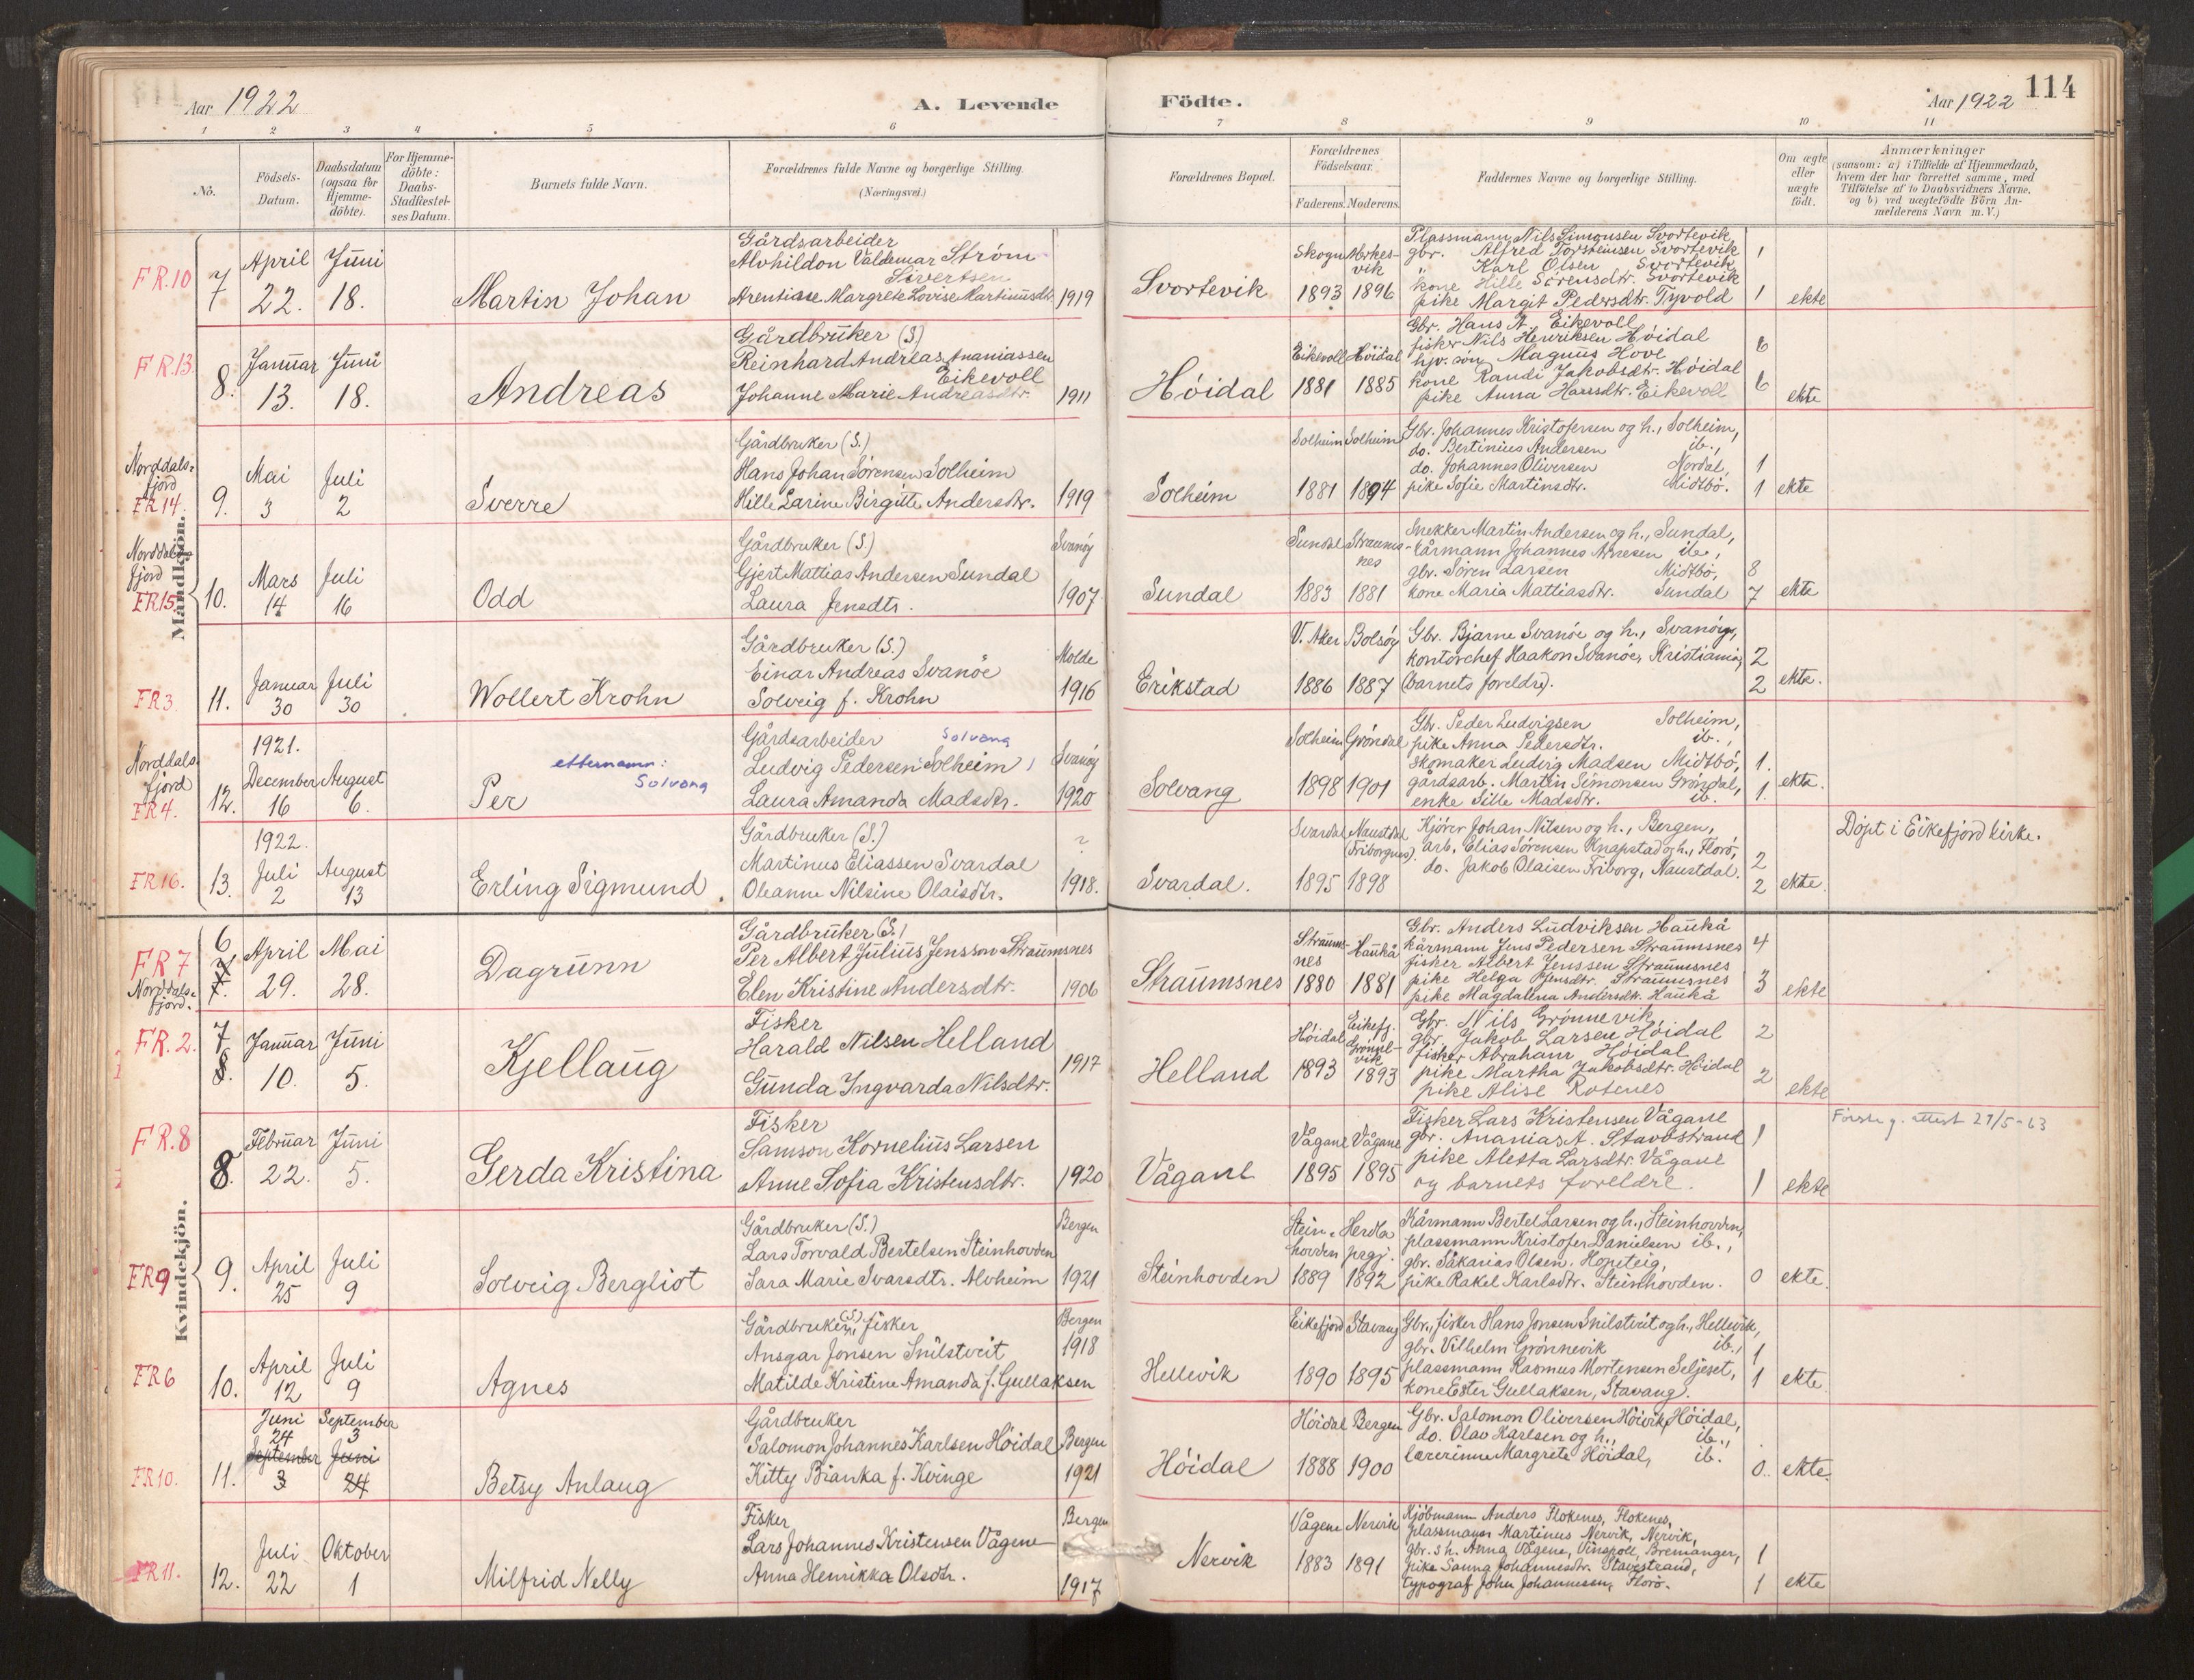 Aar 1922
A. Levende
Födte.
Aar 1922
114
1 2 3 4 5 6 7 8 9 10 11
Nò.
Födsels-
Datum.
Daabsdatum
(ogsaa för
Hjemme-
döbte).
For Hjemme-
döbte:
Daabs-
Stadfæstel-
ses Datum.
Barnets fulde Navn.
Forældrenes fulde Navne og borgerlige Stilling.
(Næringsvei.)
Forældrenes Bopæl.
Forældrenes
Födselsaar.
Faderens. Moderens.
Faddernes Navne og borgerlige Stilling.
Om ægte
eller
uægte
födt.
Anmærkninger
(saasom: a) i Tilfælde af Hjemmedaab,
hvem der har forrettet samme, med
Tilföielse af to Daabsvidners Navne,
og b) ved uægtefödte Börn An-
melderens Navn m. V.)
Mandkjön.
FR.10
7
April
22.
Juni
18.
Martin Johan
Gårdsarbeider
Alvhildon Valdemar Ström
Sivertsen
Arentine Margrete Lovise Martinusdtr.
1919
Svortevik
Skogn
1893
1896
Plassmann Nils Simonsen Svortevik
gbr. Alfred Torsteinsen Svortevik
" Karl Olsen Svortevik
kone Hille Sörensdtr. Svortevik
pike Margit Pedersdtr. Tyvold
1
1
ekte
FR.13
8.
Januar
13.
Juni
18.
Andreas
Gårdbruker (S)
Reinhard Andreas Ananiassen
Eikevoll
Johanne Marie Andreasdtr.
1911
Höidal
Eikevoll
1881
Höidal
1885
Gbr. Hans A. Eikevoll
fisker Nils Henriksen Höidal
hjv. sön Magnus Hove
kone Randi Jakobsdtr. Höidal
pike Anna Hansdtr. Eikevoll
6
6
ekte
Norddals-
fjord
FR 14.
9.
Mai
3
Juli
2
Sverre
Gårdbruker (S.)
Hans Johan Sörensen Solheim
Hille Larine Birgitte Andersdtr.
1919
Solheim
Solheim
1881
Solheim
1894
Gbr. Johannes Kristofersen og h., Solheim,
do. Bertinius Andersen ib.,
do. Johannes Oliversen Nordal,
pike Sofie Martinsdtr. Midtbö.
1
1
ekte
Norddals
fjord
FR15
10.
Mars
14
Juli
16
Odd
Gårdbruker (S.)
Gjert Mattias Andersen Sundal
Laura Jensdtr.
Svanöy
1907
Sundal
Sundal
1883
Straums-
nes
1881
Snekker Martin Andersen og h., Sundal,
kårmann Johannes Arnesen ib.,
gbr. Sören Larsen Midtbö,
kone Maria Mattiasdtr. Sundal
8
7
ekte
FR3
11.
Januar
30
Juli
30
Wollert Krohn
Gårdbruker (S.)
Einar Andreas Svanöe
Solveig f. Krohn
Molde
1916
Erikstad
V. Aker
1886
Bolsöy
1887
Gbr. Bjarne Svanöe og h., Svanöy,
kontorchef Haakon Svanöe, Kristiania,
(barnets foreldre).
2
2
ekte.
Norddals
fjord
FR4.
12.
1921.
December
16
August
6.
Per
etternamn:
Solvang
Gårdsarbeider
Solvang
Ludvig Pedersen Solheim
Laura Amanda Madsdtr.
Svanöy
1920
Solvang
Solheim
1898
Gröndal
1901
Gbr. Peder Ludvigsen Solheim,
pike Anna Pedersdtr. ib.,
skomaker Ludvig Madsen Midtbö,
gårdsarb. Martin Simonsen Gröndal,
enke Sille Madsdtr. ib.
1.
1.
ekte.
FR16.
13.
1922.
Juli
2
August
13
Erling Sigmund.
Gårdbruker (S.)
Martinus Eliassen Svardal
Oleanne Nilsine Olaisdtr.
?
1918.
Svardal.
Svardal
1895
Naustdal
(Friborgnes).
1898
Kjörer Johan Nilsen og h., Bergen,
arb. Elias Sörensen Knapstad og h., Florö,
do. Jakob Olaisen Friborg, Naustdal.
2
2
ekte.
Döpt i Eikefjord kirke.
Kvindekjön.
FR7
Norddals-
fjord.
6
7.
April
29.
Mai
28.
Dagrunn
Gårdbruker (S.)
Per Albert Julius Jenssen Straumsnes
Elen Kristine Andersdtr.
1906
Straumsnes
Straums-
nes
1880
Haukå
1881
Gbr. Anders Ludviksen Haukå
kårmann Jens Pedersen Straumsnes
fisker Albert Jenssen Straumsnes
pike Helga Jensdtr. Straumsnes
pike Magdalena Andersdtr. Haukå
4
3
ekte
FR.2.
7
8.
Januar
10.
Juni
5.
Kjellaug
Fisker
Harald Nilsen Helland
Gunda Ingvarda Nilsdtr.
1917
Helland
Höidal
1893
Eikefj.
Grönne-
vik
1893
Gbr. Nils Grönnevik
gbr. Jakob Larsen Höidal
fisker Abraham Höidal
pike Martha Jakobsdtr. Höidal
pike Alise Rotenes
2
2
ekte
FR.8
8.
Februar
22.
Juni
5.
Gerda Kristina
Fisker
Samson Kornelius Larsen
Anne Sofia Kristensdtr.
1920
Vågane
Vågane
1895
Vågane
1895
Fisker Lars Kristensen Vågane
gbr. Ananias A. Stavöstrand
pike Aletta Larsdtr. Vågane
og barnets foreldre.
1
1
ekte
attest 27/5-63
FR9
9.
April
25
Juli
9
Solveig Bergliot
Gårdbruker (S.)
Lars Torvald Bertelsen Steinhovden
Sara Marie Ivarsdtr. Alvheim
Bergen
1921
Steinhovden
Stein-
hovden
1889
Herdla
prgj.
1892
Kårmann Bertel Larsen og h., Steinhovden,
plassmann Kristofer Danielsen ib.,
gbr. Sakarias Olsen, Hopsteig,
pike Rakel Karlsdtr. Steinhovden.
0
ekte.
FR6
10.
April
12
Juli
9
Agnes
Gårdbruker (S), fisker
Ansgar Jonsen Snilstveit
Matilde Kristine Amanda f. Gullaksen
Bergen
1918
Hellevik
Eikefjord
1890
Stavang
1895
Gbr., fisker Hans Jonsen Snilstveit og h., Hellevik,
gbr. Vilhelm Grönnevik ib.,
plassmann Rasmus Mortensen Seljeset,
kone Ester Gullaksen, Stavang.
1
1
ekte.
FR10.
11.
Juni
24
September
3
September
3
Juni
24
Betsy Anlaug
Gårdbruker
Salomon Johannes Karlsen Höidal
Kitty Bianka f. Kvinge
Bergen
1921
Höidal
Höidal
1888
Bergen
1900
Gbr. Salomon Oliversen Höivik, Höidal,
do. Olav Karlsen og h., ib.,
lærerinne Margrete Höidal, ib.
0.
ekte.
FR11.
12.
Juli
22
Oktober
1
Milfrid Nelly
Fisker
Lars Johannes Kristensen Vågene
Anna Henrikka Olsdtr.
Bergen
1917
Nervik
Vågene
1883
Nervik
1891
Kjöbmann Anders Flokenes, Flokenes,
plassmann Martinus Nervik, Nervik,
gbr.s h. Anna Vågene, Vingpoll, Bremanger,
pike Sanna Johannesdtr. Stavestrand,
typograf John Johannesen, Florö.
1
1
ekte